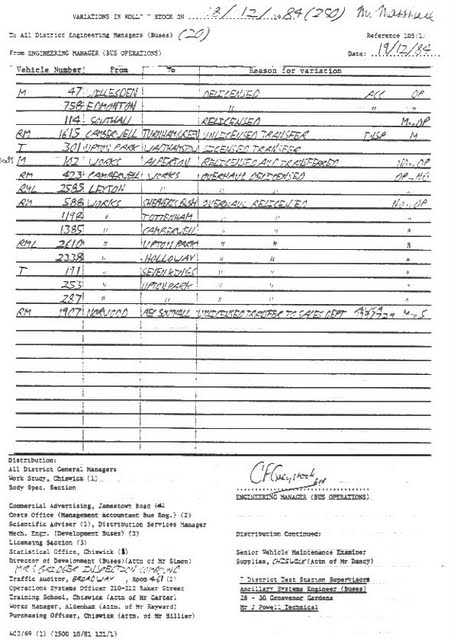 VARIATIONS IN ROLLING STOCK ON 18/12/1984 (250) Mr. Marshall
To All District Engineering Managers (Buses) (20) Reference 105/1.
From ENGINEERING MANAGER (BUS OPERATIONS) Date: 19/12/84
Vehicle Number From To Reason for variation
M 47 WILLESDEN DELICENSED ACC OP
758 EDMONTON " " "
114 SOUTHALL RELICENSED OP
RM 1615 CAMBERWELL TURNHAM GREEN UNLICENSED TRANSFER M
T 301 UPTON PARK WALTHAMSTOW LICENSED TRANSFER
M 102 WORKS ALPERTON RELICENSED AND TRANSFERRED OP
RM 423 CAMBERWELL WORKS OVERHAUL DELICENSED
RML 2585 LEYTON " " "
RM 588 WORKS SHEPHERDS BUSH OVERHAUL RELICENSED OP
1198 " TOTTENHAM " "
1385 " CAMBERWELL " "
RML 2610 " UPTON PARK " "
2338 " HOLLOWAY " "
T 191 " SEVEN KINGS " "
253 " UPTON PARK " "
287 " " " "
RM 1907 NORWOOD AEC SOUTHALL UNLICENSED TRANSFER TO SALES DEPT
Distribution:
All District General Managers
Work Study, Chiswick (1)
Body Spec. Section
ENGINEERING MANAGER (BUS OPERATIONS)
Commercial Advertising, Jamestown Road
Costs Office (Management Accountant Bus Eng.) (2)
Scientific Adviser (1), Distribution Services Manager
Mech. Engr. (Development Buses) (3)
Licensing Section (3)
Statistical Office, Chiswick
Director of Development (Buses)(Attn of Mr Simon)
Traffic Auditor, BROADWAY, Room 461 (2)
Operations Systems Officer 210-212 Baker Street
Training School, Chiswick (Attn. of Mr Carter)
Works Manager, Aldenham (Attn. of Mr Hayward)
Purchasing Officer, Chiswick (Attn. of Mr Hillier)
Distribution Continued:
Senior Vehicle Maintenance Examiner
Supplies, CHISWICK (Attn of Mr Dancy)
District Test Station Supervisors
Ancillary Systems Engineer (Buses)
28 - 30 Grosvenor Gardens
Mr J Powell Technical
(1) (2500 10/81